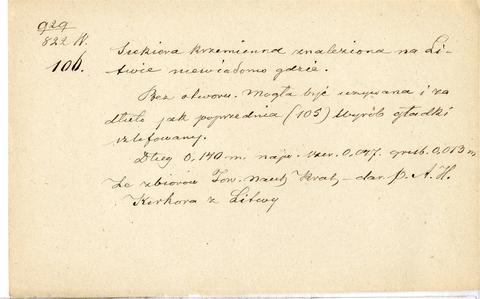 929
822 K.
106.
Siekiera krzemienna znaleziona na Li-
twie niewiadomo gdzie.
Bez otworu. Mogła być używana i za
dłuto jak poprzednia (105) Wyrób gładki
szlifowany.
Dług 0,140 m. najw. szer. 0,047. grub. 0,013 m,
Ze zbiorów Tow. nauk. Krak, – dar. p. A. H.
Kirkora z Litwy